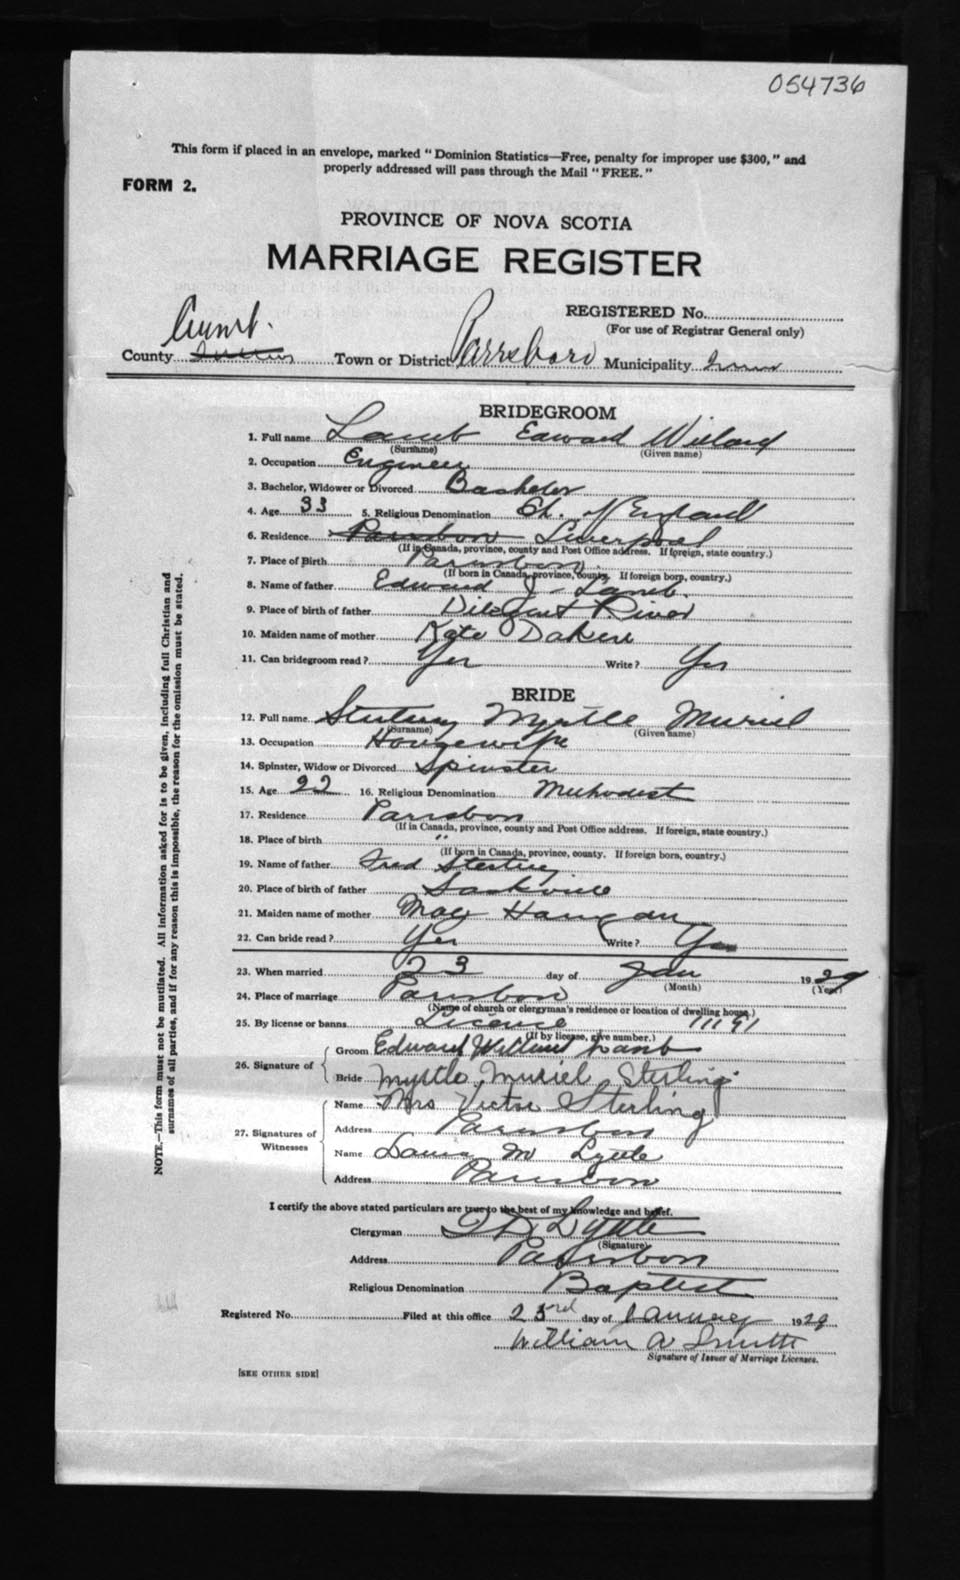 054736
This form if placed in an envelope, marked "Dominion Statistics—Free, penalty for improper use $300," and
properly addressed will pass through the Mail "FREE."
FORM 2.
PROVINCE OF NOVA SCOTIA
MARRIAGE REGISTER
REGISTERED No.
(For use of Registrar General only)
County Cumb. Town or District Parrsboro Municipality
BRIDEGROOM
1. Full name Lamb Edward Willard
(Surname) (Given name)
2. Occupation Engineer
3. Bachelor, Widower or Divorced Bachelor
4. Age 33 5. Religious Denomination Ch. of England
6. Residence Parrsboro Liverpool
(If in Canada, province, county and Post Office address. If foreign, state country.)
7. Place of Birth Parrsboro
(If born in Canada, province, county. If foreign born, country.)
8. Name of father Edward J. Lamb.
9. Place of birth of father Diligent River
10. Maiden name of mother Kate Dakin
11. Can bridegroom read? Yes Write? Yes
BRIDE
12. Full name Sterling Myrtle Muriel
(Surname) (Given name)
13. Occupation Housewife
14. Spinster, Widow or Divorced Spinster
15. Age 22 16. Religious Denomination Methodist
17. Residence Parrsboro
(If in Canada, province, county and Post Office address. If foreign, state country.)
18. Place of birth "
(If born in Canada, province, county. If foreign born, country.)
19. Name of father Fred Sterling
20. Place of birth of father Sackville
21. Maiden name of mother May
22. Can bride read? Yes Write? Yes
23. When married 23 day of Jan 1929
(Month) (Year)
24. Place of marriage Parrsboro
(Name of church or clergyman's residence or location of dwelling house.)
25. By license or banns License 11191
(If by license, give number.)
26. Signature of
Groom Edward Willard Lamb
Bride Myrtle Muriel Sterling
27. Signatures of Witnesses
Name Mrs Victor Sterling
Address Parrsboro
Name Laura M Lyttle
Address Parrsboro
I certify the above stated particulars are true to the best of my knowledge and belief.
Clergyman Lyttle
(Signature)
Address Parrsboro
Religious Denomination Baptist
Registered No. Filed at this office 23rd day of January 1929
William A Smith
Signature of Issuer of Marriage Licenses.
[SEE OTHER SIDE]
NOTE.—This form must not be mutilated. All information asked for is to be given, including full Christian and
surnames of all parties, and if for any reason this is impossible, the reason for the omission must be stated.